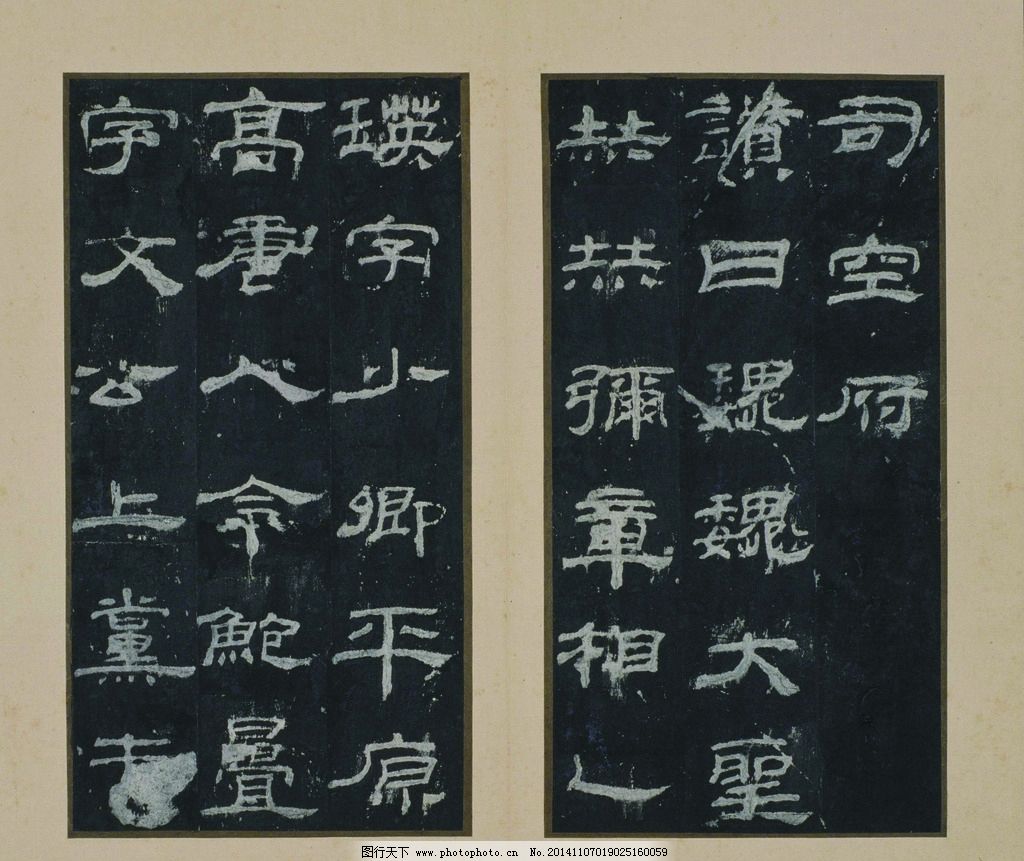 司空府
讃曰魏魏大聖
赫赫彌章相乙
瑛字少卿平原
高唐人令鮑疊
字文公上黨屯
图行天下 www.photophoto.cn No.20141107019025160059